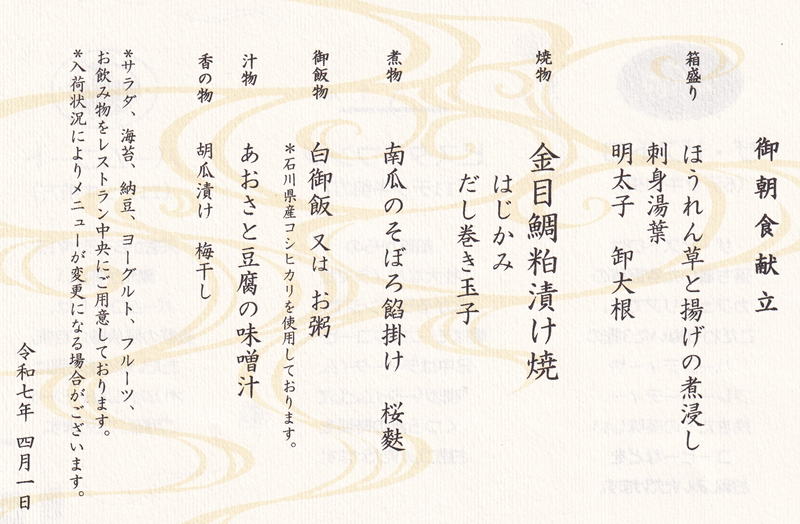 御朝食献立
箱盛り ほうれん草と揚げの煮浸し
刺身湯葉
明太子 卸大根
焼物 金目鯛粕漬け焼
はじかみ
だし巻き玉子
煮物 南瓜のそぼろ餡掛け 桜麩
御飯物 白御飯 又は お粥
*石川県産コシヒカリを使用しております。
汁物 あおさと豆腐の味噌汁
香の物 胡瓜漬け 梅干し
*サラダ、海苔、納豆、ヨーグルト、フルーツ、
お飲み物をレストラン中央にご用意しております。
*入荷状況によりメニューが変更になる場合がございます。
令和七年 四月一日